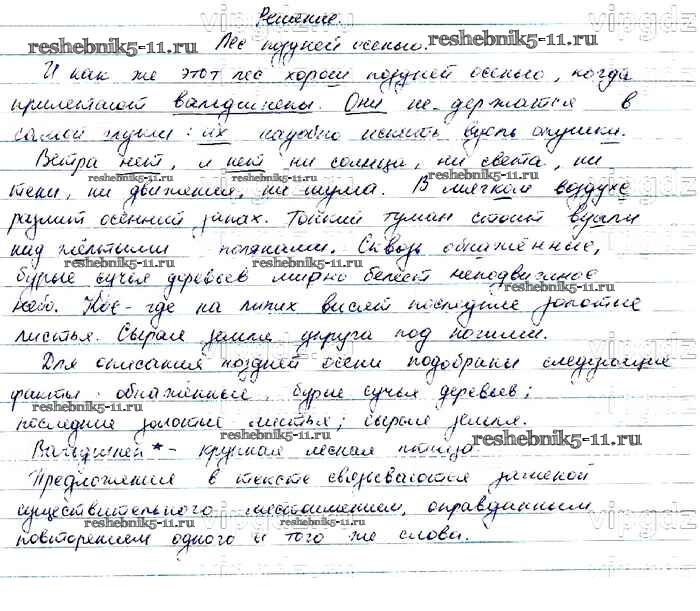 Решение.
Лес поздней осенью.
И как же этот лес хорош поздней осенью, когда
прилетают вальдшнепы. Они не держатся в
самой глуши: их надобно искать вдоль опушки.
Ветра нет, и нет ни солнца, ни света, ни
тени, ни движения, ни шума. В мягком воздухе
разлит осенний запах. Тонкий туман стоит вдали
над жёлтыми полями. Сквозь обнажённые,
бурые сучья деревьев мирно белеет неподвижное
небо. Кое-где на липах висят последние золотые
листья. Сырая земля упруга под ногами.
Для описания поздней осени подобраны следующие
факты: обнажённые, бурые сучья деревьев;
последние золотые листья; сырая земля.
Вальдшнеп* - крупная лесная птица
Предложения в тексте связываются заменой
существительного местоимением, оправданным
повторением одного и того же слова.
reshebnik5-11.ru
reshebnik5-11.ru
reshebnik5-11.ru
reshebnik5-11.ru
reshebnik5-11.ru
reshebnik5-11.ru
reshebnik5-11.ru
reshebnik5-11.ru
reshebnik5-11.ru
reshebnik5-11.ru